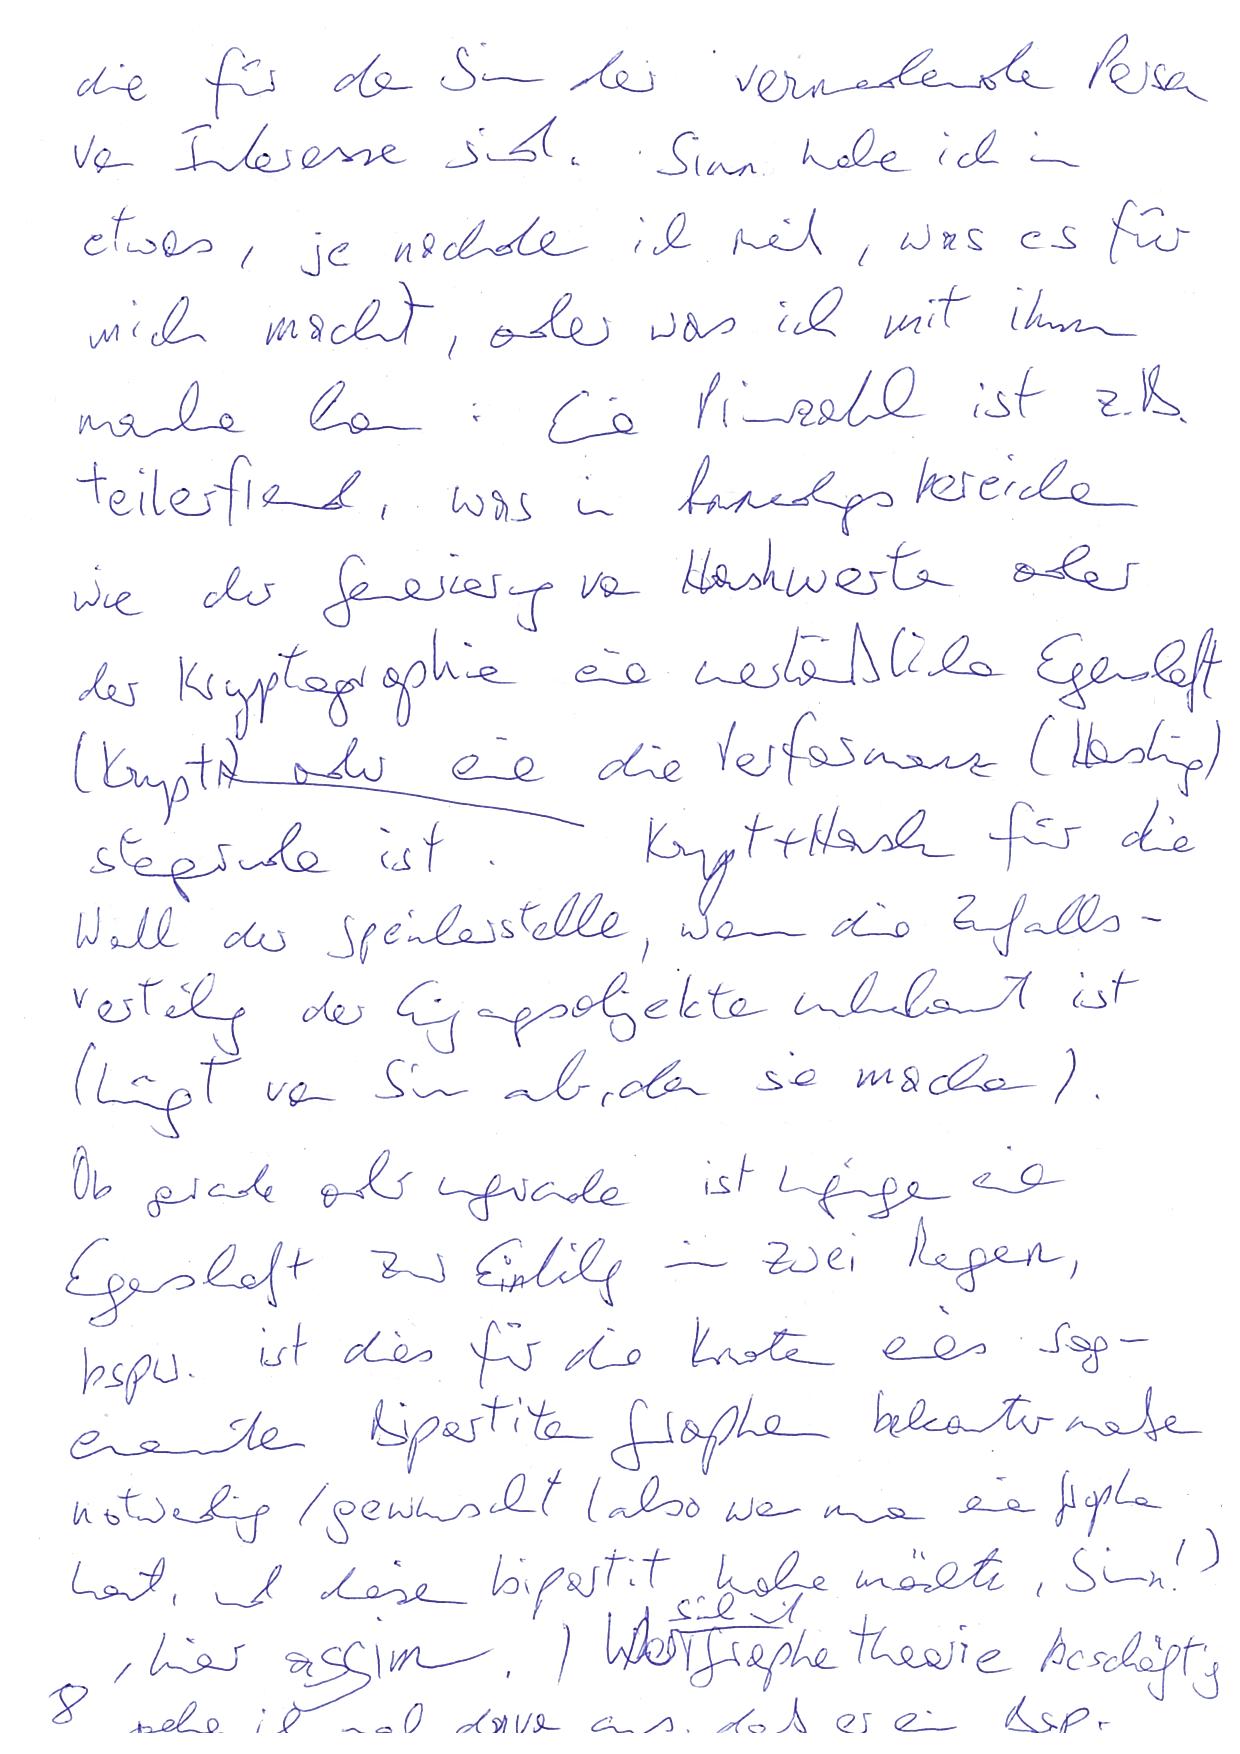 die für den Sinn der verwendenden Person
von Interesse sind. Sinn habe ich in
etwas, je nachdem ich will, was es für
mich macht, oder was ich mit ihm
machen kann: Eine Primzahl ist z.B.
teilerfremd, was in Anwendungsbereichen
wie der Generierung von Hashwerten oder
der Kryptographie eine unerläßliche Eigenschaft
(Krypt) oder eine die Performanz (Hashing)
steigernde ist. Krypt+Hash für die
Wahl der Speicherstelle, wenn die Zufalls-
verteilung der Eingangsobjekte unbekannt ist
(hängt von Sinn ab, den sie machen).
Ob gerade oder ungerade ist hingegen eine
Eigenschaft zur Einteilung in zwei Mengen,
bspw. ist dies für die Knoten eines sog-
enannten Bipartiten Graphen bekannter maßen
notwendig / gewünscht (also wenn man einen Graphen
hat, und diesen bipartit haben möchte, Sinn!)
, hier assim.) Wer sich mit Graphentheorie beschäftigt
8 gehe ich mal davon aus, daß er ein Bsp.